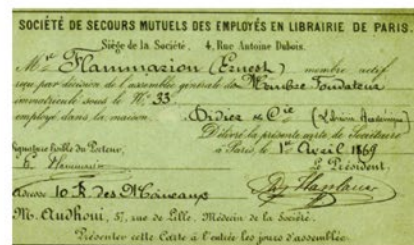 SOCIÉTÉ DE SECOURS MUTUELS DES EMPLOYÉS EN LIBRAIRIE DE PARIS.
Siège de la Société, 4, Rue Antoine Dubois.
Mr Flammarion (Ernest) membre actif
reçu par décision de l'assemblée générale du Membre Fondateur
immatriculé sous le No 33,
employé dans la maison Didier & Cie (Librairie Académique)
Délivré la présente carte de Sociétaire
Signature lisible du Porteur, à Paris, le 1er Avril 1869
E Flammarion Le Président.
Adresse 10 R. des
M. Audhoui, 57, rue de Lille, Médecin de la Société.
Présenter cette Carte à l'entrée les jours d'assemblée.